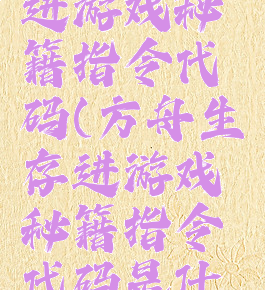 进游戏秘
籍指令代
码(方舟生
存进游戏
秘籍指令
代码是什